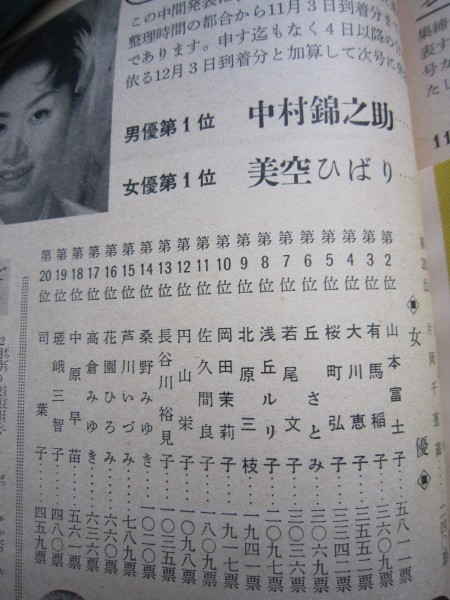 この中間発表に
整理時間の都合から11月3日到着分ま
であります。申す迄もなく4日以降の分
依る12月3日到着分と加算して次号に
男優第1位 中村錦之助……
女優第1位 美空ひばり……
■女優■
第2位 山本富士子…五八一二票
第3位 有馬稲子…三六〇九票
第4位 大川恵子…三五六二票
第5位 桜町弘子…三三四二票
第6位 丘さとみ…三〇六九票
第7位 若尾文子…三〇三六票
第8位 浅丘ルリ子…二〇九七票
第9位 北原三枝…一九四一票
第10位 岡田茉莉子…一九一七票
第11位 佐久間良子…一八〇九票
第12位 円山栄子…一〇九八票
第13位 長谷川裕見子…一〇三五票
第14位 桑野みゆき…一〇二〇票
第15位 芦川いづみ…七八九票
第16位 花園ひろみ…六六〇票
第17位 高倉みゆき…六三六票
第18位 中原早苗…五六〇票
第19位 瑳峨三智子…四八〇票
第20位 司葉子…四五九票